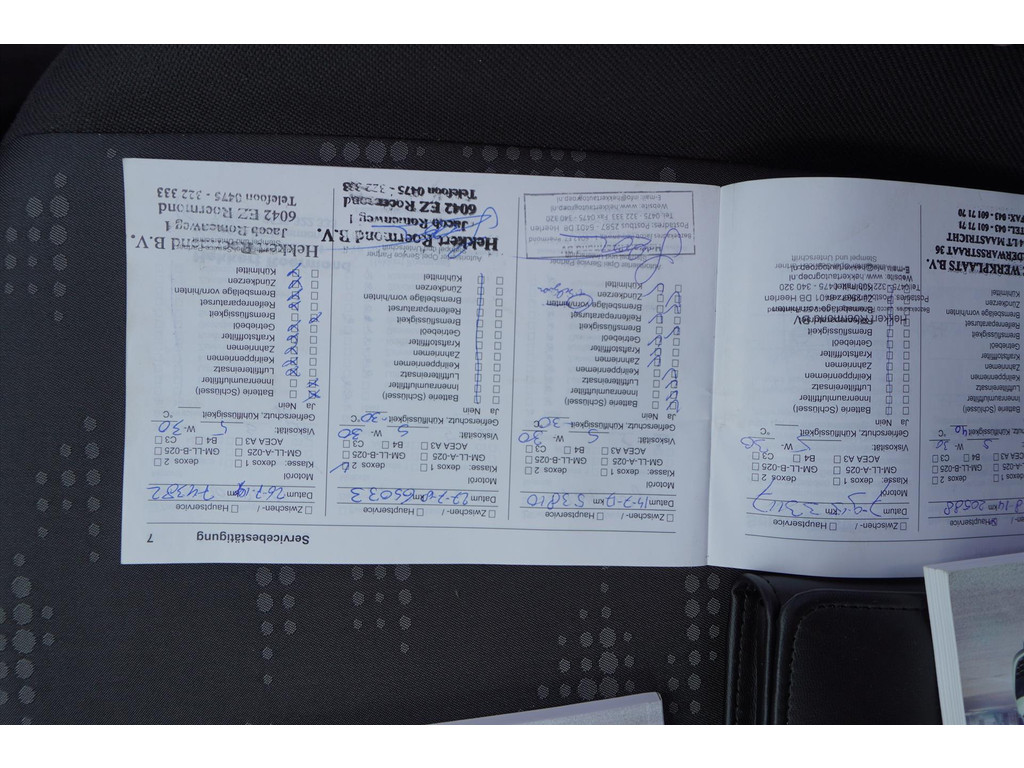 Hauptservice
8-14 km 20588
dexos 1 ☐ dexos 2
GM-LL-A-025 ☐ GM-LL-B-025
ACEA A3 ☐ B4 ☐ C3
Viskosität: 5 W- 30
Gefrierschutz, Kühlflüssigkeit 40 °C
Batterie (Schlüssel)
Innenraumluftfilter
Luftfiltereinsatz
Keilrippenriemen
Zahnriemen
Kraftstofffilter
Getriebeöl
Bremsflüssigkeit
Reifenreparaturset
Bremsbeläge vorn/hinten
Zündkerzen
Kühlmittel
WERKPLAATS B.V.
DERWARSTRAAT 36
MAASTRICHT
TEL: 043 - 601 71 71
FAX: 043 - 601 71 70
☐ Zwischen- / ☐ Hauptservice
Datum km 33117
Motoröl
Klasse: ☐ dexos 1 ☐ dexos 2
☐ GM-LL-A-025 ☐ GM-LL-B-025
☐ ACEA A3 ☐ B4 ☐ C3
Viskosität: 5 W- 30
Gefrierschutz, Kühlflüssigkeit °C
Ja Nein
☐ ☐ Batterie (Schlüssel)
☐ ☐ Innenraumluftfilter
☐ ☐ Luftfiltereinsatz
☐ ☐ Keilrippenriemen
☐ ☐ Zahnriemen
☐ ☐ Kraftstofffilter
☐ ☐ Getriebeöl
☐ ☐ Bremsflüssigkeit
Hekkert Roermond BV
Stempel und Unterschrift
Servicebestätigung 7
☐ Zwischen- / ☐ Hauptservice
Datum 14-7- km 53810
Motoröl
Klasse: ☐ dexos 1 ☐ dexos 2
☐ GM-LL-A-025 ☐ GM-LL-B-025
☐ ACEA A3 ☐ B4 ☐ C3
Viskosität: 5 W- 30
Gefrierschutz, Kühlflüssigkeit -30 °C
Ja Nein
Batterie (Schlüssel)
Innenraumluftfilter
Luftfiltereinsatz
Keilrippenriemen
Zahnriemen
Kraftstofffilter
Getriebeöl
Bremsflüssigkeit
Reifenreparaturset
Bremsbeläge vorn/hinten
Zündkerzen
Kühlmittel
Autorisierter Opel Service Partner
Postadres: Postbus 2587 - 6401 DB Heerlen
Tel. 0475 - 322 333 Fax 0475 - 340 320
Website: www.hekkertautogroep.nl
E-mail: info@hekkertautogroep.nl
☐ Zwischen- / ☐ Hauptservice
Datum 27-7- km 65033
Motoröl
Klasse: ☐ dexos 1 dexos 2
☐ GM-LL-A-025 ☐ GM-LL-B-025
☐ ACEA A3 ☐ B4 ☐ C3
Viskosität: 5 W- 30
Gefrierschutz, Kühlflüssigkeit -30 °C
Ja Nein
Batterie (Schlüssel)
Innenraumluftfilter
Luftfiltereinsatz
Keilrippenriemen
Zahnriemen
Kraftstofffilter
Getriebeöl
Bremsflüssigkeit
Reifenreparaturset
Bremsbeläge vorn/hinten
Zündkerzen
Kühlmittel
Hekkert Roermond B.V.
Jacob Romenweg 1
6042 EZ Roermond
Telefoon 0475 - 322 333
☐ Zwischen- / ☐ Hauptservice
Datum 26-7- km 74382
Motoröl
Klasse: ☐ dexos 1 ☐ dexos 2
☐ GM-LL-A-025 ☐ GM-LL-B-025
☐ ACEA A3 ☐ B4 ☐ C3
Viskosität: 5 W- 30
Gefrierschutz, Kühlflüssigkeit °C
Ja Nein
Batterie (Schlüssel)
Innenraumluftfilter
Luftfiltereinsatz
Keilrippenriemen
Zahnriemen
Kraftstofffilter
Getriebeöl
Bremsflüssigkeit
Reifenreparaturset
Bremsbeläge vorn/hinten
Zündkerzen
Kühlmittel
Hekkert Roermond B.V.
Jacob Romenweg 1
6042 EZ Roermond
Telefoon 0475 - 322 333